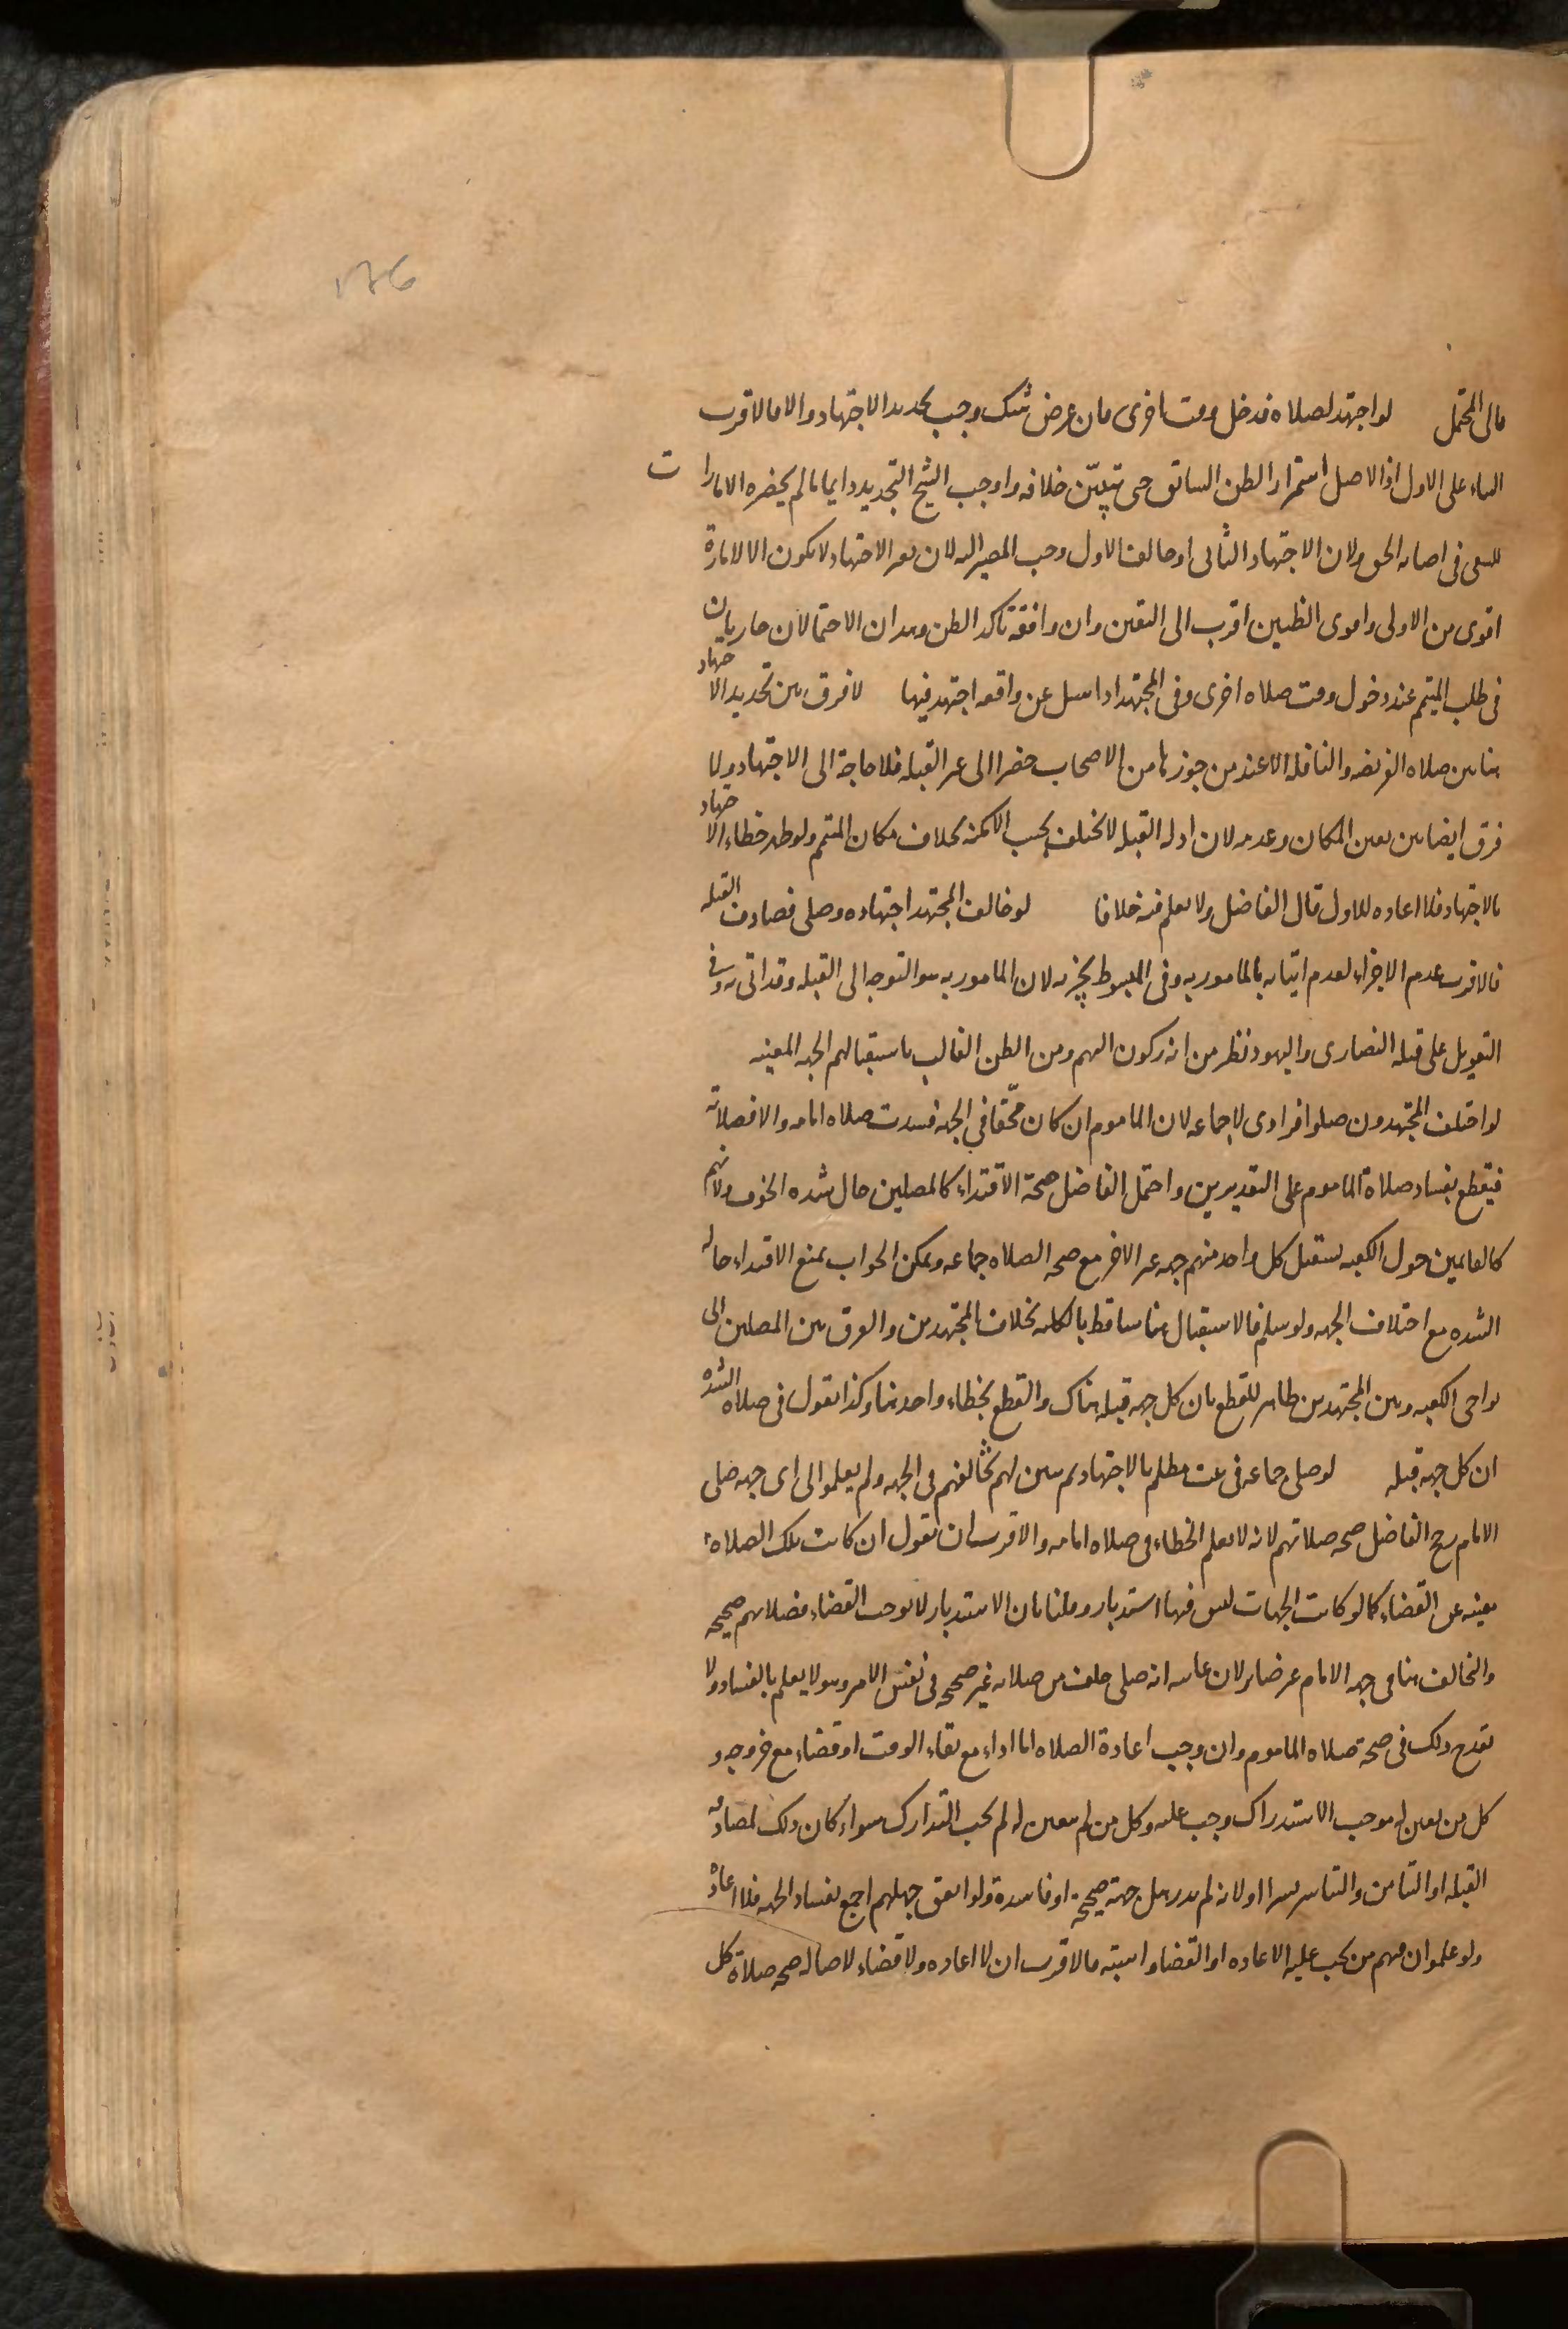 176
مالى المحتمل لو اجتهد لصلاه فدخل وقت اخرى فان عرض شك وجب تجديد الاجتهاد والا فالاقرب
البناء على الاول اذ الاصل استمرار الظن السابق حتى تبيّن خلافه واوجب الشيخ التجديد دايما ما لم يحضره الامارات
للسعى فى اصابه الحق ولان الاجتهاد الثانى ان خالف الاول وجب المصير اليه لان تغير الاجتهاد لا يكون الا لامارة
اقوى من الاولى واقوى الظنين اقرب الى اليقين وان وافقه تاكد الظن وهذان الاحتمالان جاريان
فى طلب المتيمم عند دخول وقت صلاه اخرى وفى المجتهد اذا سئل عن واقعه اجتهد فيها لا فرق بين تجديد الاجتهاد
هنا بين صلاه الفريضه والنافله الا عند من جوزها من الاصحاب حضرا الى غير القبله فلا حاجة الى الاجتهاد ولا
فرق ايضا بين تغير المكان وعدمه لان ادله القبله لا تختلف بحسب الامكنه بخلاف مكان المتيمم ولو ظهر خطاء الاجتهاد
بالاجتهاد فلا اعاده للاول قال الفاضل ولا نعلم فيه خلافا لو خالف المجتهد اجتهاده وصلى فصادف القبله
فالاقرب عدم الاجزاء لعدم اتيانه بالمامور به وفى المبسوط يجزيه لان المامور به هو التوجه الى القبله وقد اتى به وفى
التعويل على قبله النصارى واليهود نظر من انه ركون اليهم ومن الظن الغالب باستقبالهم الجهه المعينه
لو اختلف المجتهدون صلوا فرادى لا جماعه لان الماموم ان كان محقّا فى الجهه فسدت صلاه امامه والا فصلاته
فيقطع بفساد صلاة الماموم على التقديرين واحتمل الفاضل صحة الاقتداء كالمصلين حال شده الخوف ولانهم
كالقايمين حول الكعبه يستقبل كل واحد منهم جهه غير الاخر مع صحه الصلاه جماعه ويمكن الجواب بمنع الاقتداء حاله
الشده مع اختلاف الجهه ولو سلم فالاستقبال هنا ساقط بالكليه بخلاف المجتهدين والفرق بين المصلين الى
نواحى الكعبه وبين المجتهدين ظاهر للقطع بان كل جهه قبله هناك والقطع بخطاء واحد هنا وكذا نقول فى صلاه الشده
ان كل جهه قبله لو صلى جماعه فى بيت مظلم بالاجتهاد ثم تبين لهم تخالفهم فى الجهه ولم يعلموا الى اى جهه صلى
الامام رجح الفاضل صحه صلاتهم لانه لا يعلم الخطاء فى صلاه امامه والاقرب ان نقول ان كانت تلك الصلاه
مغنيه عن القضاء كما لو كانت الجهات ليس فيها استدبار وقلنا بان الاستدبار لا يوجب القضاء فصلاتهم صحيحه
والتخالف هنا فى جهه الامام غير ضاير لان غايته انه صلى خلف من صلاته غير صحيحه فى نفس الامر وهو لا يعلم بالفساد ولا
يقدح ذلك فى صحة صلاه الماموم وان وجب اعادة الصلاه اما اداء مع بقاء الوقت او قضاء مع خروجه و
كل من تعين له موجب الاستدراك وجب عليه وكل من لم يتعين له لم يجب التدارك سواء كان ذلك لمصادفه
القبله او التيامن والتياسر يسيرا او لانه لم يدر هل جهته صحيحة او فاسدة ولو اتفق جهلهم اجمع بفساد الجهه فلا اعادة
ولو علموا ان فيهم من يجب عليه الاعاده او القضا واشتبه فالاقرب ان لا اعاده ولا قضاء لاصاله صحه صلاة كل